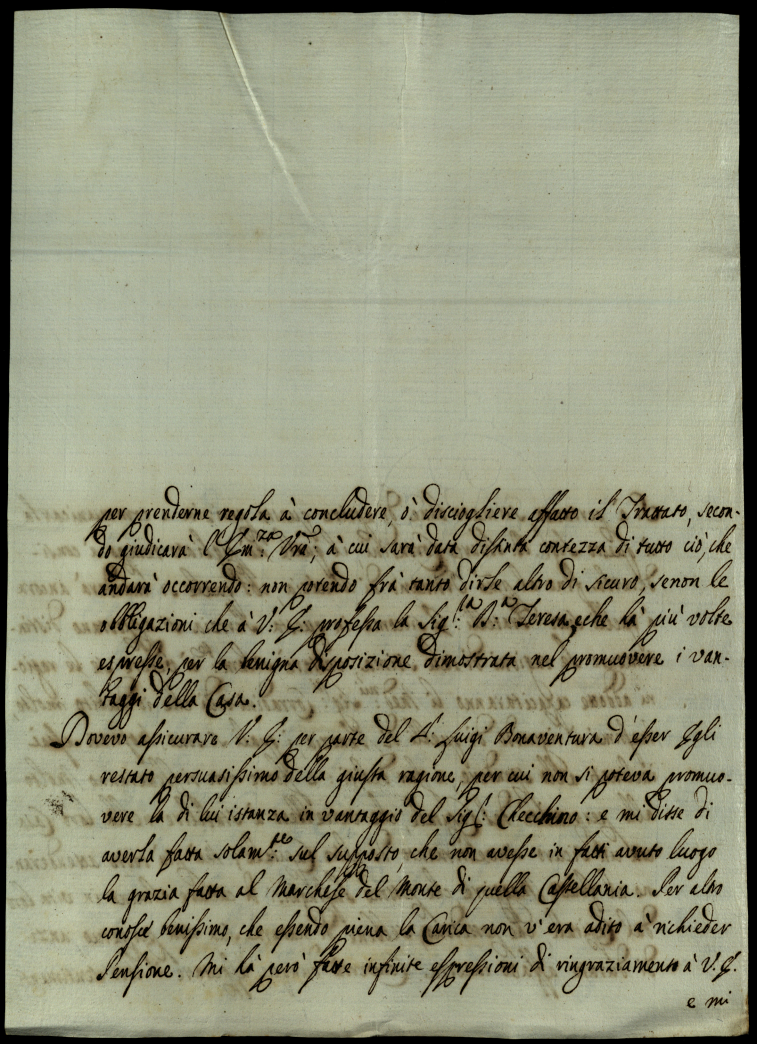 per prenderne regola à concludere, ò disciogliere affatto il Trattato, secon-
do giudicarà l'Em:za Vrã; à cui sarà data distinta contezza di tutto ciò, che
andarà occorrendo: non potendo frà tanto dirle altro di sicuro, senon le
obbligazioni che à V: E: professa la Sig:ra D:a Teresa, che hà più volte
espresse, per la benigna disposizione dimostrata nel promuovere i van-
taggi della Casa.
Dovevo assicurare V: E: per parte del S:r Luigi Bonaventura d'esser Egli
restato persuasissimo della giusta ragione, per cui non si poteva promuo-
vere la di lui istanza in vantaggio del Sig:r Checchino: e mi disse di
averla fatta solam:te sul supposto, che non avesse in fatti avuto luogo
la grazia fatta al Marchese del Monte di quella Castellania. Per altro
conoscé benissimo, che essendo piena la Carica non v'era adito à richieder
Pensione. Mi hà però fatte infinite espressioni di ringraziamento à V. E.
e mi